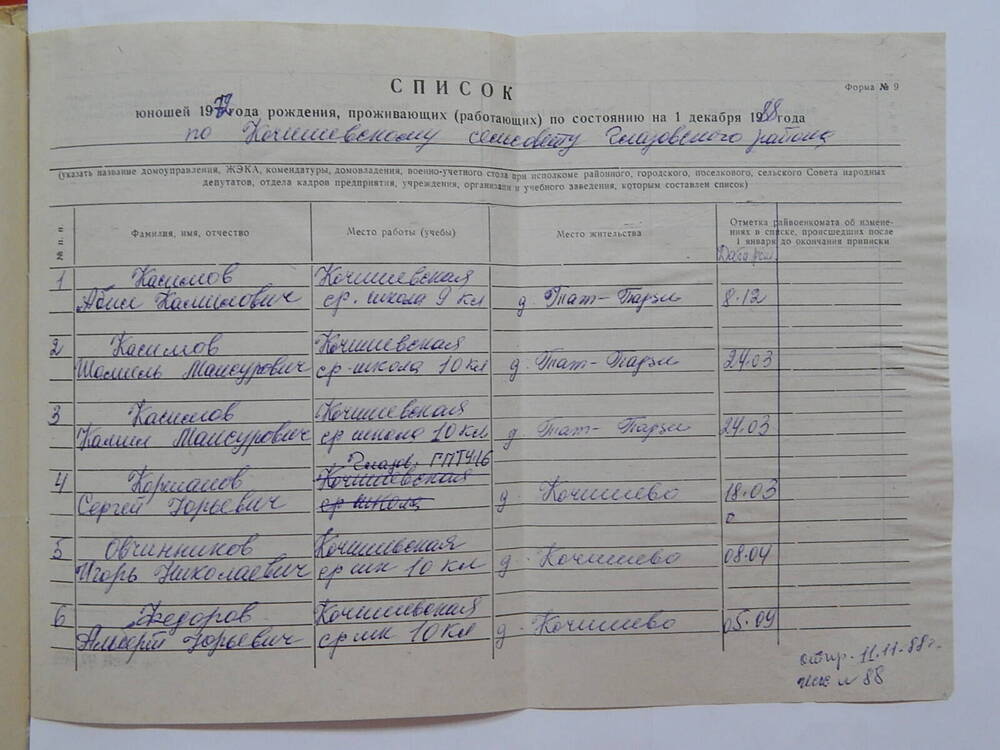 СПИСОК
Форма № 9
юношей 1972 года рождения, проживающих (работающих) по состоянию на 1 декабря 1988 года
по Кочишевскому сельсовету Глазовского района
(указать название домоуправления, ЖЭКА, комендатуры, домовладения, военно-учетного стола при исполкоме районного, городского, поселкового, сельского Совета народных
депутатов, отдела кадров предприятия, учреждения, организации и учебного заведения, которым составлен список)
№ п. п.
Фамилия, имя, отчество
Место работы (учебы)
Место жительства
Отметка райвоенкомата об изменениях
в списке, происшедших после
1 января до окончания приписки
1 Касимов Кочишевская
ср. школа 9 кл д. Тат-Парзи 8.12
2 Касимов Кочишевская
Мансурович ср школа 10 кл д. Тат-Парзи 24.03
3 Касимов Кочишевская
Камил Мансурович ср школа 10 кл д. Тат-Парзи 24.03
Глазов, ГПТУ 16
4 Кочишевская
Сергей Юрьевич ср школа д. Кочишево 18.03
5 Овчинников Кочишевская
Игорь Николаевич ср шк 10 кл д. Кочишево 08.04
6 Федоров Кочишевская
Альберт Юрьевич ср шк 10 кл д. Кочишево 05.04
отпр. 11.11.88 г.
исх № 88